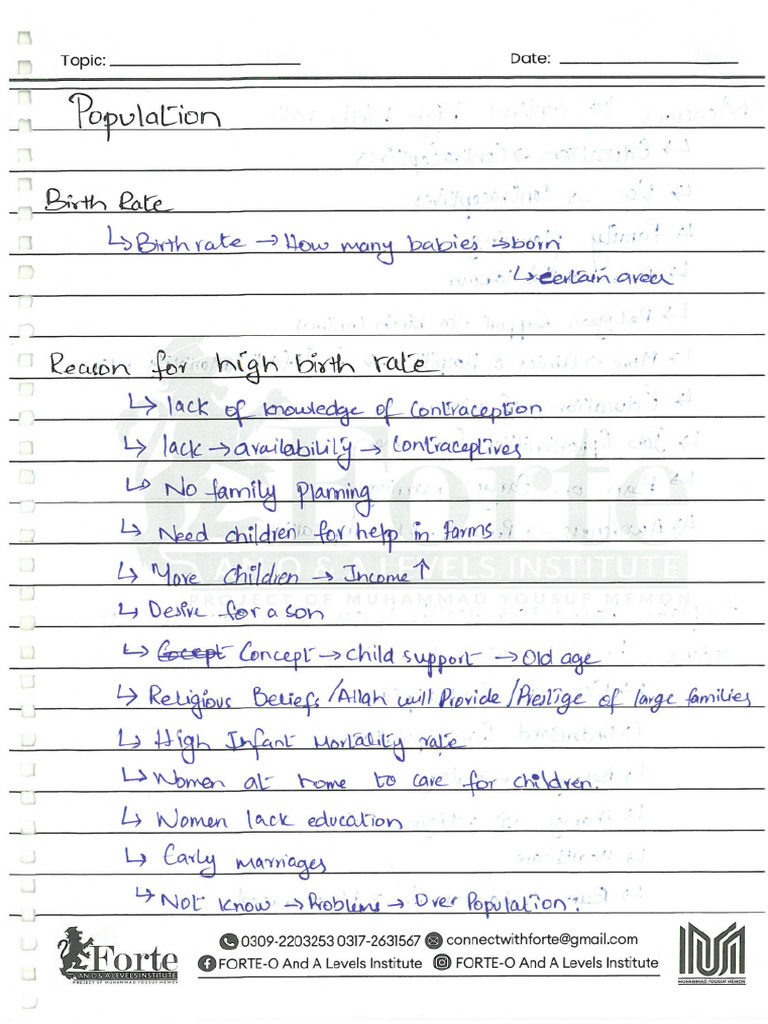 Topic:
Date:
Population
Birth Rate
↳ Birth rate → How many babies → born
↳ certain area
Reason for high birth rate
↳ lack of knowledge of contraception
↳ lack → availability → contraceptives
↳ No family planning
↳ Need children for help in farms.
↳ More children → Income ↑
↳ Desire for a son
↳ Cocept Concept → child support → Old age
↳ Religious Beliefs / Allah will Provide / Prestige of large families
↳ High Infant Mortality rate
↳ Women at home to care for children.
↳ Women lack education
↳ Early marriages
↳ Not know → Problems → Over Population.
Forte
AN O & A LEVELS INSTITUTE
PROJECT OF MUHAMMAD YOUSUF MEMON
Forte
AN O & A LEVELS INSTITUTE
PROJECT OF MUHAMMAD YOUSUF MEMON
0309-2203253 0317-2631567 connectwithforte@gmail.com
FORTE-O And A Levels Institute FORTE-O And A Levels Institute
MUHAMMAD YOUSUF MEMON